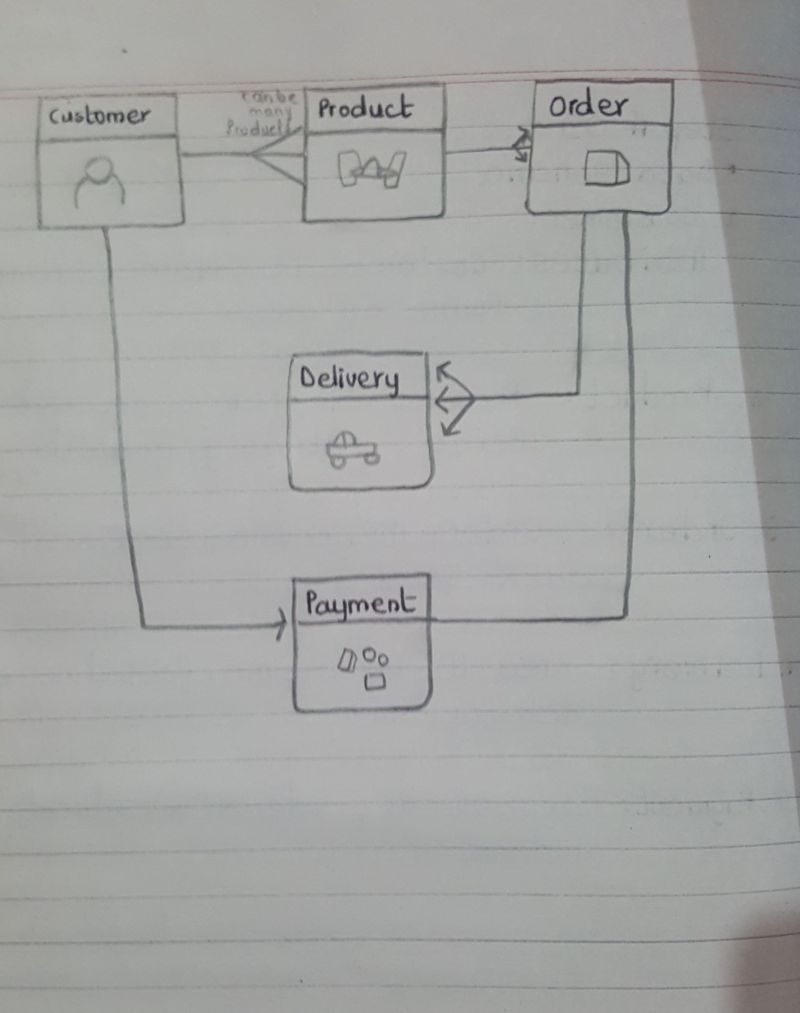 Customer
can be
many
Products
Product
Order
Delivery
Payment